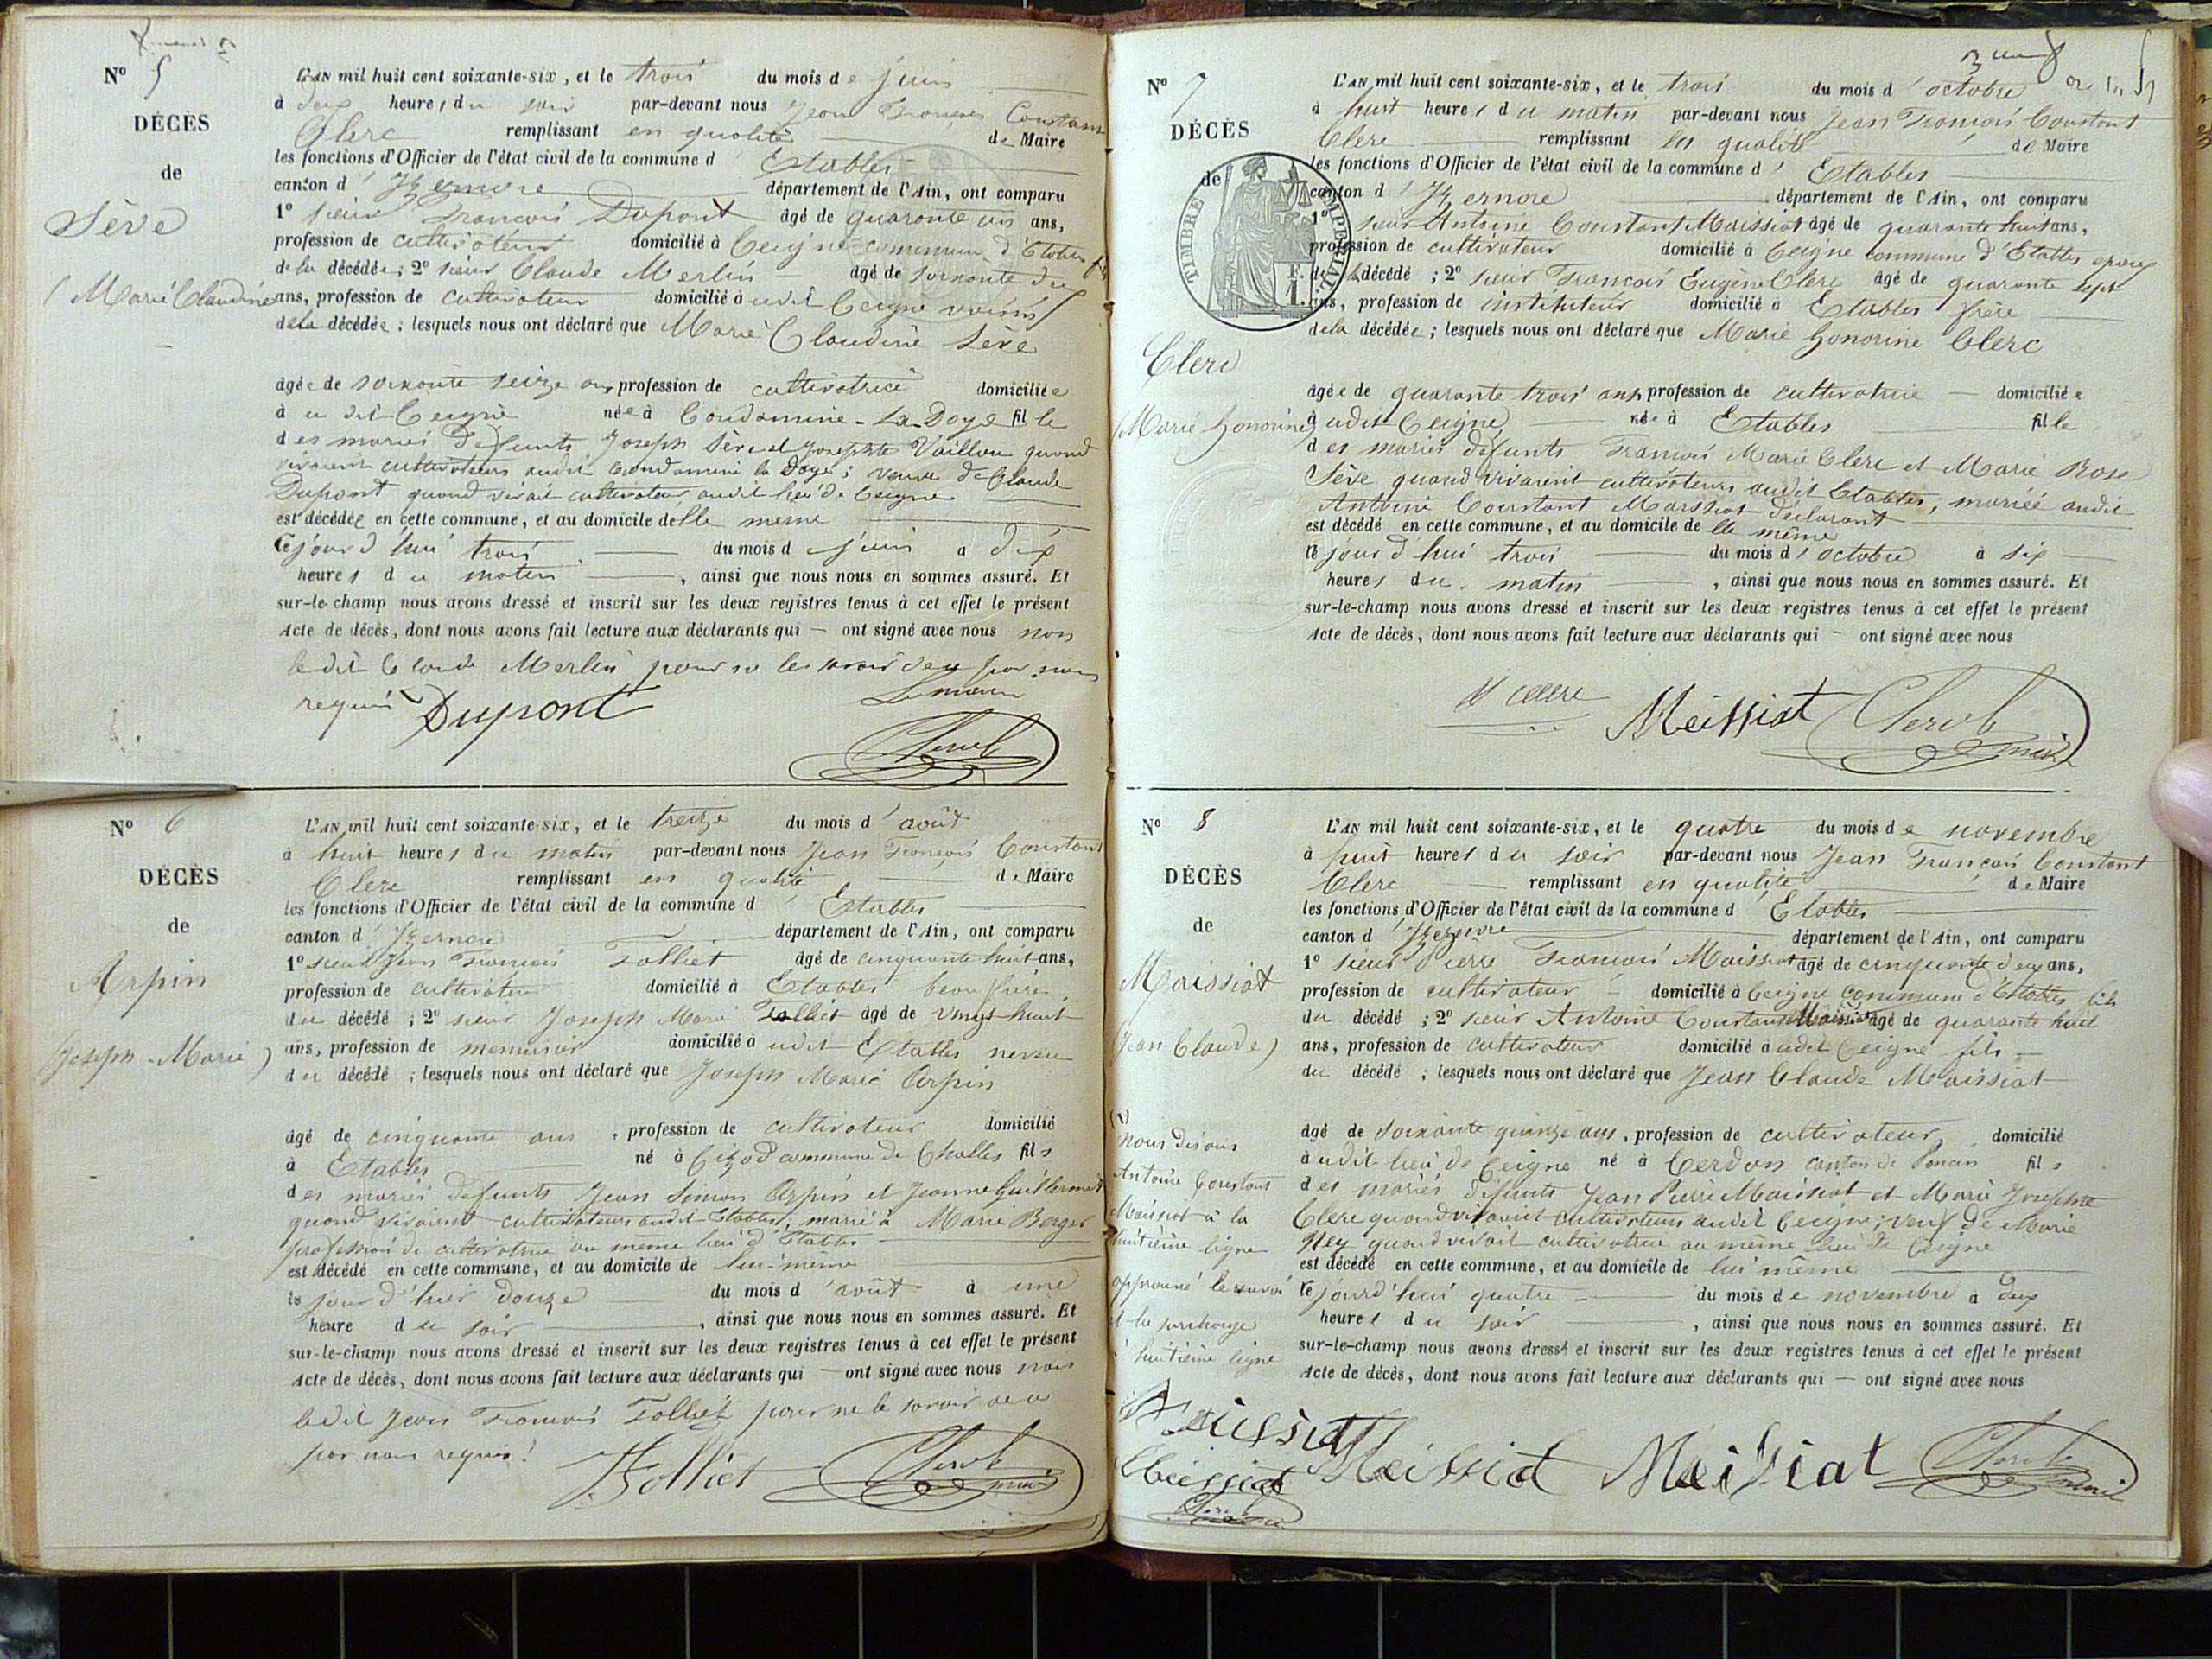 Nº 5
DÉCÈS
de
Sève
(Marie Claudine
L'AN mil huit cent soixante-six, et le trois du mois de juin
à deux heures du soir par-devant nous Jean François Constant
Clerc remplissant en qualité de Maire
les fonctions d'Officier de l'état civil de la commune d' Etables
canton d' Izernore département de l'Ain, ont comparu
1º sieur François Dupont âgé de quarante un ans,
profession de cultivateur domicilié à Ceigne commune d'Etables
de la décédée; 2º sieur Claude Merlin âgé de soixante
ans, profession de cultivateur domicilié à udit Ceigne voisin
de la décédée; lesquels nous ont déclaré que Marie Claudine Sève
âgée de soixante seize ans, profession de cultivatrice domiciliée
à udit Ceigne née à Condamine-La-Doye fille
des mariés défunts Joseph Sève et Josephte Vaillou quand
vivaient cultivateurs audit Condamine la Doye; veuve de Claude
Dupont quand vivait cultivateur audit lieu de Ceigne
est décédée en cette commune, et au domicile d'elle même
ce jour d'hui trois du mois de juin à dix
heures du matin, ainsi que nous nous en sommes assuré. Et
sur-le-champ nous avons dressé et inscrit sur les deux registres tenus à cet effet le présent
Acte de décès, dont nous avons fait lecture aux déclarants qui — ont signé avec nous non
ledit Claude Merlin pour ne le savoir de ce par nous
requis Dupont
Le maire
Clerc C
Nº 6
DÉCÈS
de
Arpin
Joseph-Marie)
L'AN mil huit cent soixante-six, et le treize du mois d'août
à huit heures du matin par-devant nous Jean François Constant
Clerc remplissant en qualité de Maire
les fonctions d'Officier de l'état civil de la commune d' Etables
canton d' Izernore département de l'Ain, ont comparu
1º sieur Jean François Tolliet âgé de cinquante huit ans,
profession de cultivateur domicilié à Etables beau frère
du décédé; 2º sieur Joseph Marie Tolliet âgé de vingt huit
ans, profession de menuisier domicilié à udit Etables neveu
du décédé; lesquels nous ont déclaré que Joseph Marie Arpin
âgé de cinquante ans, profession de cultivateur domicilié
à Etables né à Cizod commune de Challes fils
des mariés défunts Jean Simon Arpin et Jeanne Guillermet
quand vivaient cultivateurs audit Etables; marié à Marie Berger
profession de cultivatrice au même lieu d'Etables
est décédé en cette commune, et au domicile de lui-même
le jour d'hier douze du mois d'août à une
heure du soir, ainsi que nous nous en sommes assuré. Et
sur-le-champ nous avons dressé et inscrit sur les deux registres tenus à cet effet le présent
Acte de décès, dont nous avons fait lecture aux déclarants qui — ont signé avec nous non
ledit Jean François Tolliet pour ne le savoir de ce
par nous requis!
Tolliet Clerc C maire
Nº 7
DÉCÈS
de
TIMBRE IMPERIAL
Clerc
(Marie Honorine)
L'AN mil huit cent soixante-six, et le trois du mois d'octobre
à huit heures du matin par-devant nous Jean François Constant
Clerc remplissant en qualité de Maire
les fonctions d'Officier de l'état civil de la commune d' Etables
canton d' Izernore département de l'Ain, ont comparu
1º sieur Antoine Constant Maissiat âgé de quarante huit ans,
profession de cultivateur domicilié à Ceigne commune d'Etables époux
de la décédé; 2º sieur François Eugène Clerc âgé de quarante sept
ans, profession de instituteur domicilié à Etables frère
de la décédée; lesquels nous ont déclaré que Marie Honorine Clerc
âgée de quarante trois ans, profession de cultivatrice — domiciliée
à udit Ceigne née à Etables fille
des mariés défunts François Marie Clerc et Marie Rose
Sève quand vivaient cultivateurs audit Etables; mariée audit
Antoine Constant Maissiat déclarant
est décédé en cette commune, et au domicile de elle même
le jour d'hui trois du mois d'octobre à six
heures du matin, ainsi que nous nous en sommes assuré. Et
sur-le-champ nous avons dressé et inscrit sur les deux registres tenus à cet effet le présent
Acte de décès, dont nous avons fait lecture aux déclarants qui — ont signé avec nous
Clerc Meissiat Clerc C
maire
Nº 8
DÉCÈS
de
Maissiat
(Jean Claude)
(1)
nous disons
Antoine Constant
Maissiat à la
huitième ligne
approuvé le renvoi
et la surcharge
à huitième ligne
L'AN mil huit cent soixante-six, et le quatre du mois de novembre
à huit heures du soir par-devant nous Jean François Constant
Clerc remplissant en qualité de Maire
les fonctions d'Officier de l'état civil de la commune d' Etables
canton d' Izernore département de l'Ain, ont comparu
1º sieur Pierre François Maissiat âgé de cinquante deux ans,
profession de cultivateur domicilié à Ceigne commune d'Etables fils
du décédé; 2º sieur Antoine Constant Maissiat âgé de quarante huit
ans, profession de cultivateur domicilié à udit Ceigne fils
du décédé; lesquels nous ont déclaré que Jean Claude Maissiat
âgé de soixante quinze ans, profession de cultivateur, domicilié
à udit lieu de Ceigne né à Cerdon canton de Poncin fils
des mariés défunts Jean Pierre Maissiat et Marie Josephte
Clerc quand vivaient cultivateurs audit Ceigne; veuf de Marie
Ney quand vivait cultivatrice au même lieu de Ceigne
est décédé en cette commune, et au domicile de lui même
ce jourd'hui quatre du mois de novembre à deux
heures du soir, ainsi que nous nous en sommes assuré. Et
sur-le-champ nous avons dressé et inscrit sur les deux registres tenus à cet effet le présent
Acte de décès, dont nous avons fait lecture aux déclarants qui — ont signé avec nous
Meissiat Meissiat Meissiat Clerc C
Meissiat maire
Clerc C